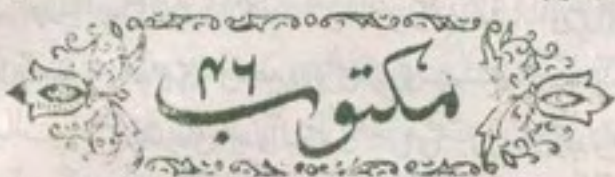 مکتوب ۴۶